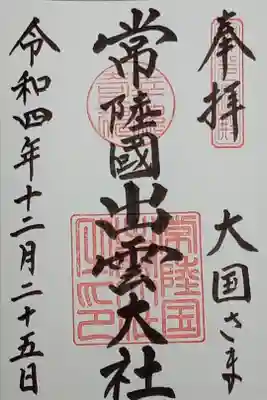 奉拝
大国さま
常陸國出雲大社
常陸国
令和四年十二月二十五日